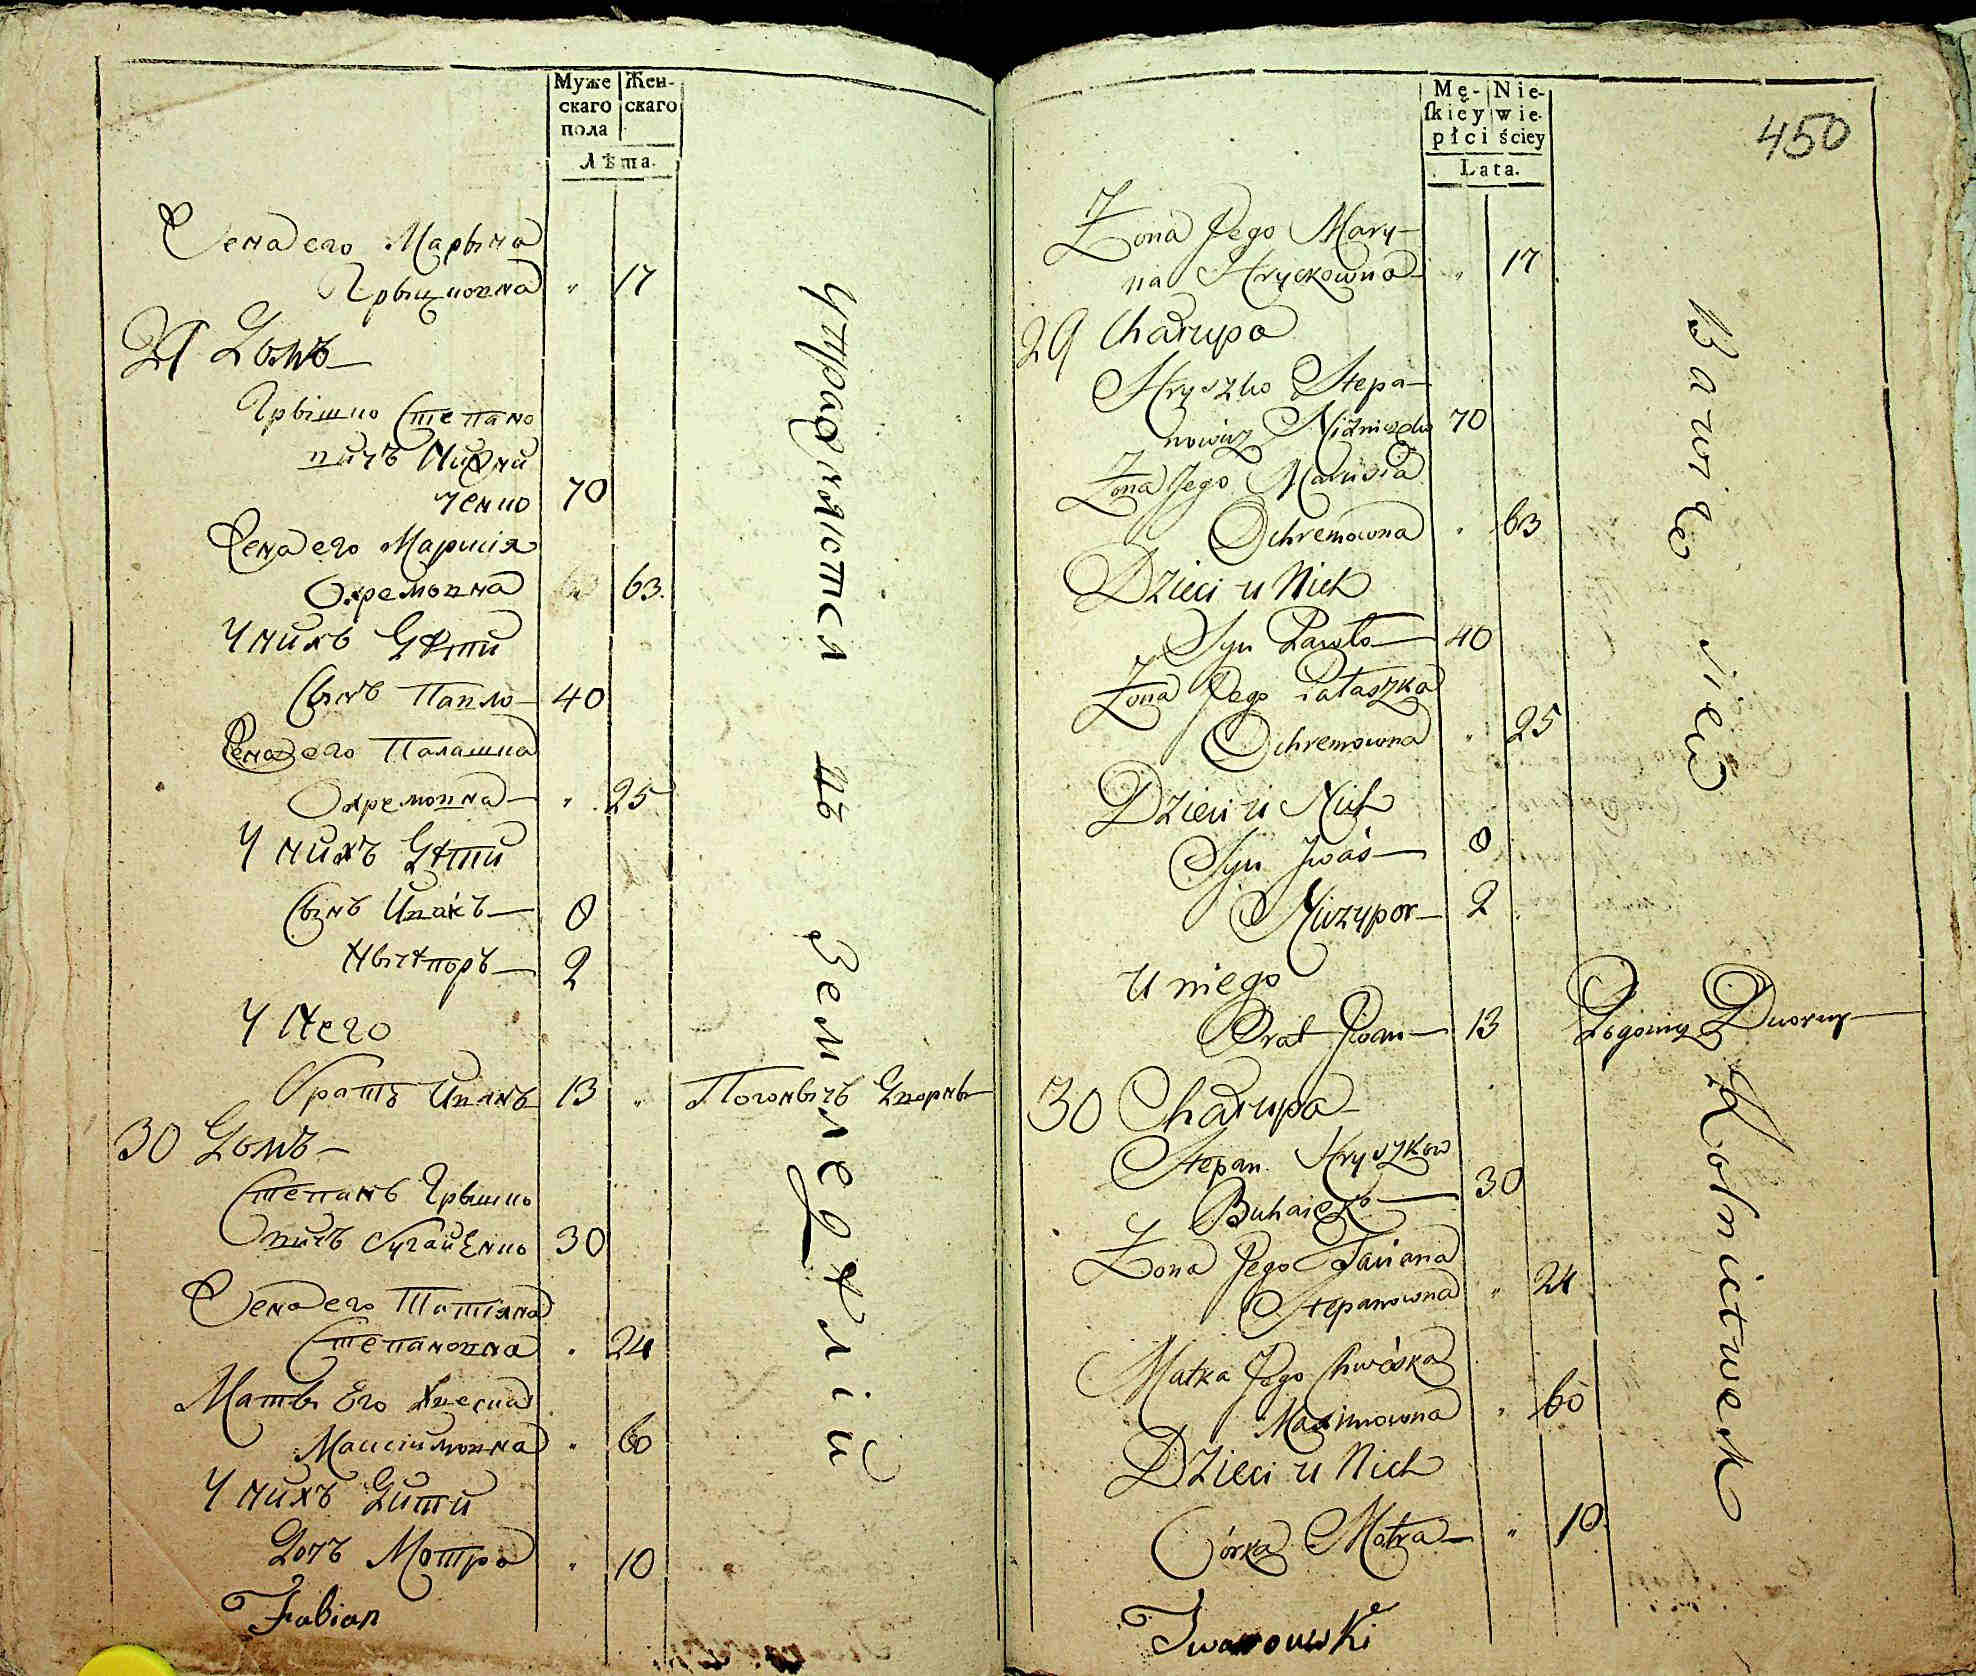 Муже
скаго
пола
Жен-
скаго
Лѣта.
Жена его Марына
Грыцковна " 17
29 Домъ
Грышко Степано
вичъ Нижни
ченко 70
Жена его Марусія
Охремовна 63.
У нихъ Дѣти
Сынъ Павло 40
Жена его Палашка
Охремовна " 25
У нихъ Дѣти
Сынъ Ивасъ 8
Нычыпоръ 2
У Него
Братъ Иванъ 13 " Погонычъ Дворны
30 Домъ
Степанъ Грышко
вичъ Бугаенко 30
Жена его Татіяна
Степановна " 24
Мать Его Хвеска
Максимовна " 60
У нихъ Дити
Дочь Мотра " 10
Fabian
Упражняется въ Земледѣліи
Mę-
skiey
płci
Nie-
wie-
ściey
Lata.
450
Żona Jego Mary-
na Hryckowna " 17
29 Chałupa
Hryszko Stepa-
nowicz 70
Żona Jego Marusia
Ochremowna " 63
Dzieci u Nich
Syn Pawło 40
Żona Jego Pałaszka
Ochremowna " 25
Dzieci u Nich
Syn Iwaś 8
Niczypor 2
U niego
Brat Iwan 13 Pogonicz Dworny
30 Chałupa
Stepan Hryszkow
30
Żona Jego Taciana
Stepanowna " 24
Matka Jego Chweśka
Maximowna " 60
Dzieci u Nich
Córka Motra " 10
Iwanowski
Bawie się Rolnictwem